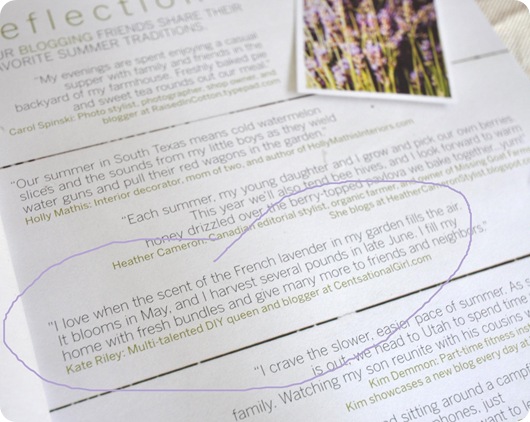 eflection
UR BLOGGING FRIENDS SHARE THEIR
AVORITE SUMMER TRADITIONS.
"My evenings are spent enjoying a casual
supper with family and friends in the
backyard of my farmhouse. Freshly baked pie
and sweet tea rounds out our meal."
Carol Spinski: Photo stylist, photographer, shop owner, and
blogger at RaisedInCotton.typepad.com
"Our summer in South Texas means cold watermelon
slices and the sounds from my little boys as they wield
water guns and pull their red wagons in the garden."
Holly Mathis: Interior decorator, mom of two, and author of HollyMathisInteriors.com
"Each summer, my young daughter and I grow and pick our own berries.
This year we'll also tend bee hives, and I look forward to warm
honey drizzled over the berry-topped pavlova we bake together...yum!
Heather Cameron: Canadian editorial stylist, organic farmer, and owner of Missing Goat Farm
She blogs at HeatherCameronStylist.blogspot
"I love when the scent of the French lavender in my garden fills the air.
It blooms in May, and I harvest several pounds in late June. I fill my
home with fresh bundles and give many more to friends and neighbors."
Kate Riley: Multi-talented DIY queen and blogger at CentsationalGirl.com
"I crave the slower, easier pace of summer. As s
is out, we head to Utah to spend time
family. Watching my son reunite with his cousins w
Kim Demmon: Part-time fitness
Kim showcases a new blog every day at
d sitting around a campfi
phones, just
want to le